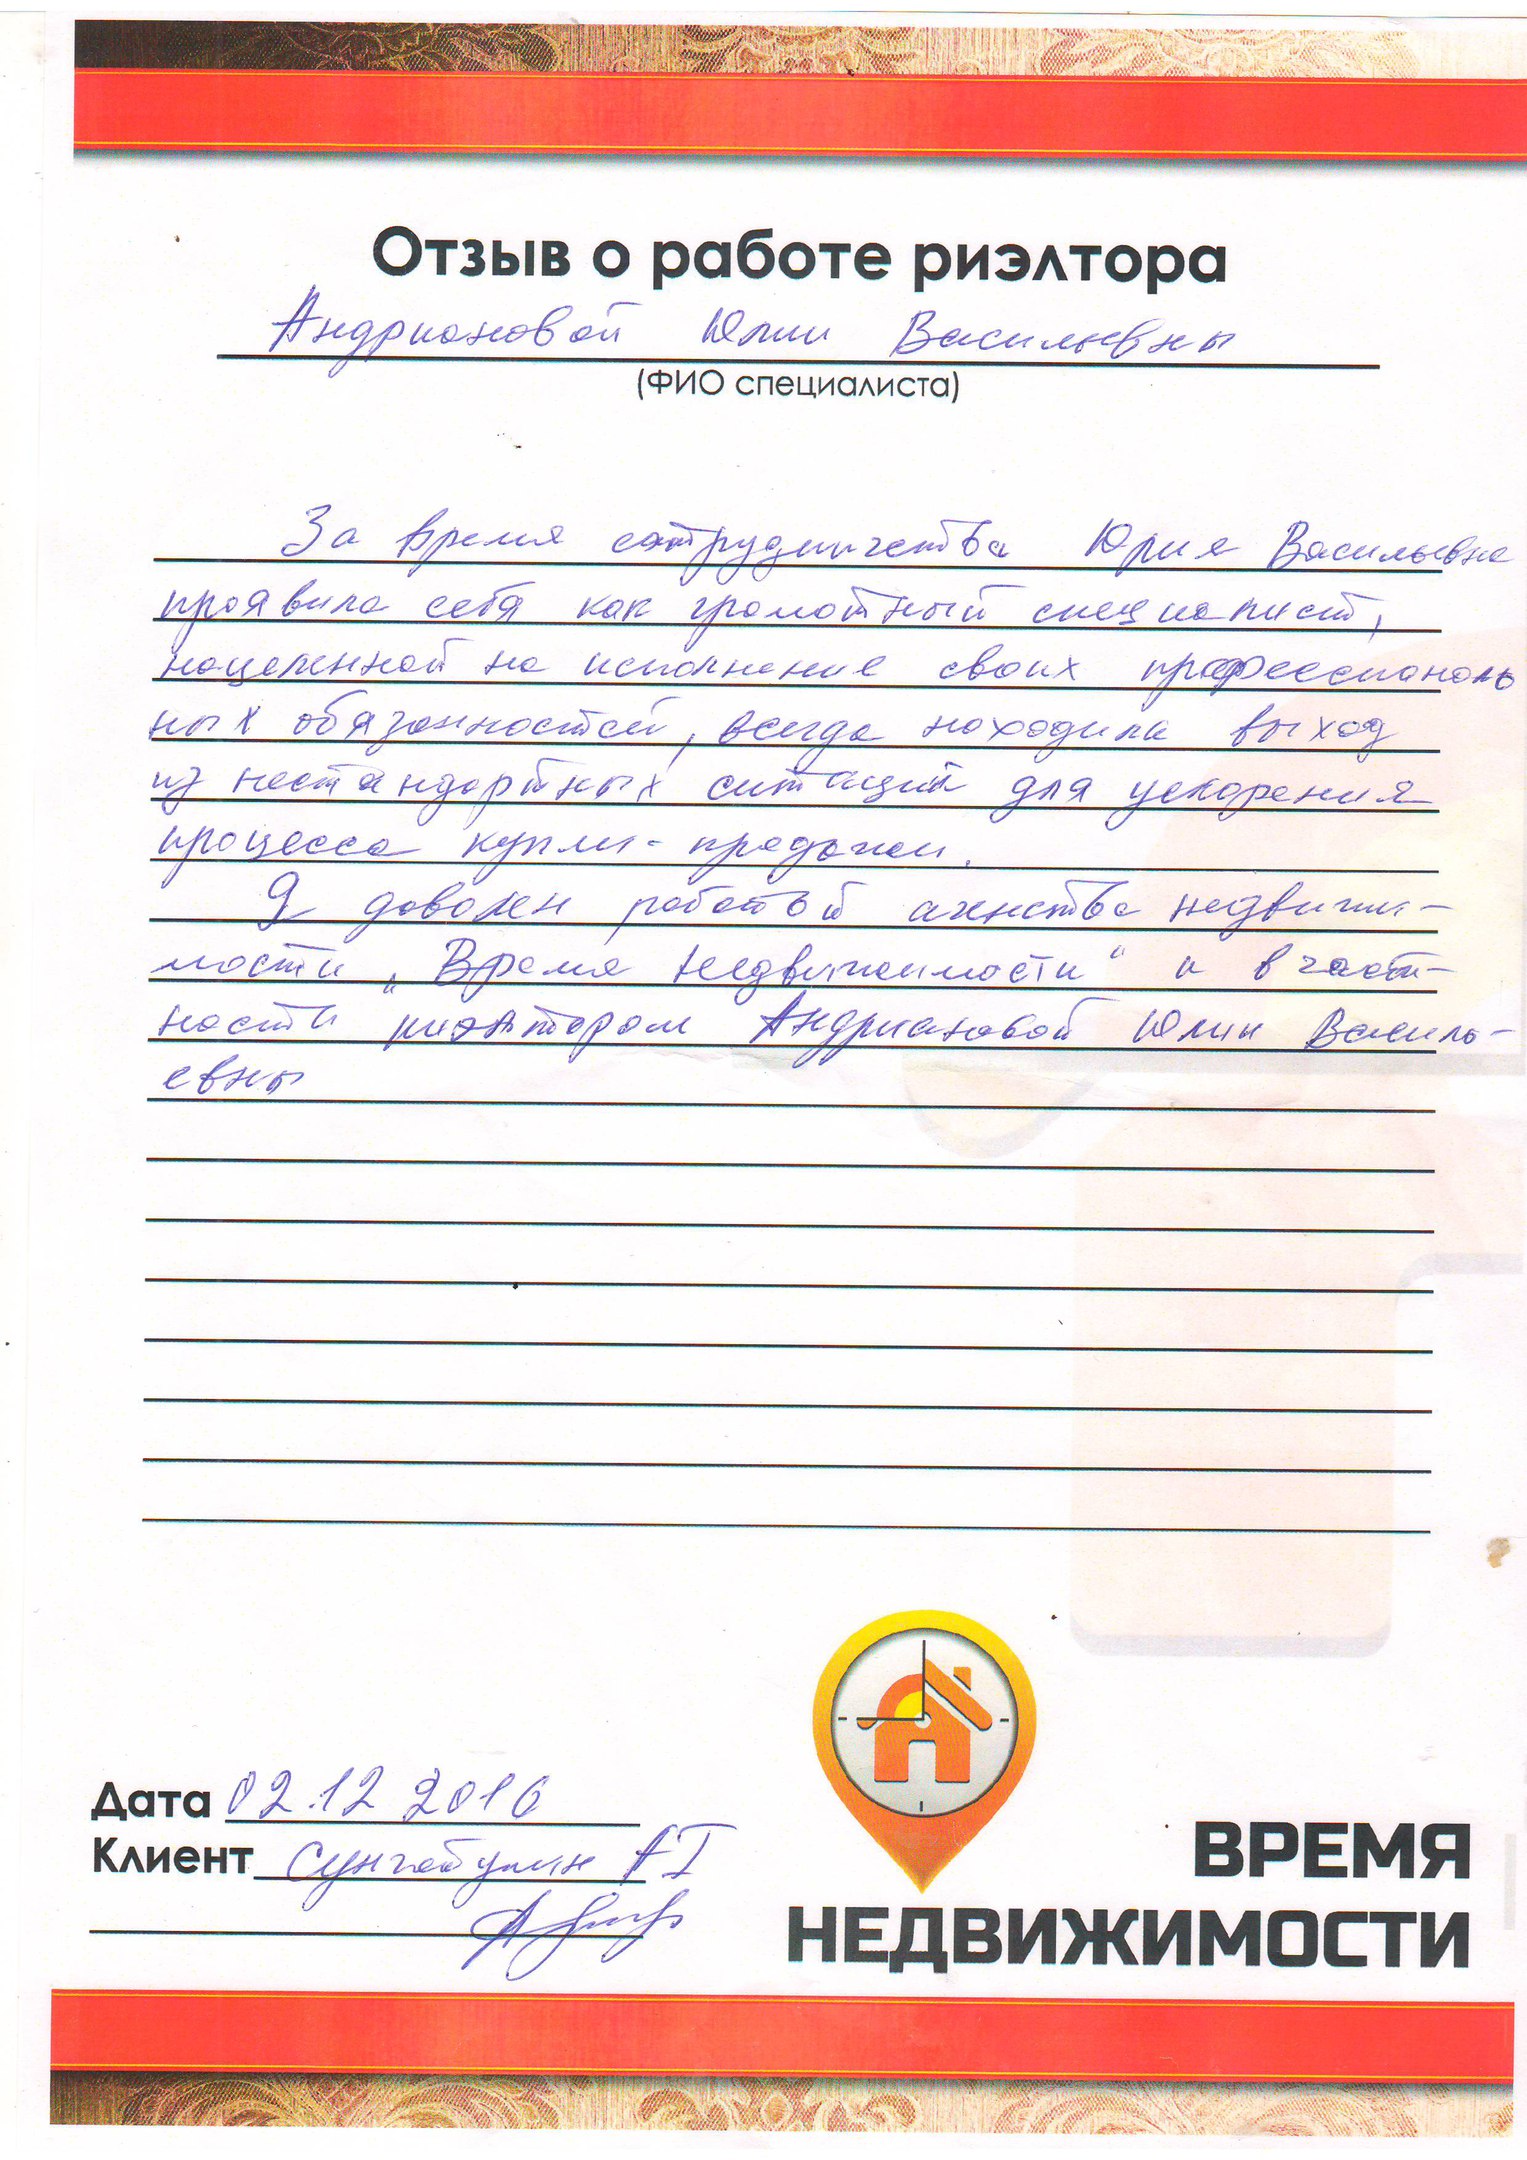 Отзыв о работе риэлтора
Андриановой Юлии Васильевны
(ФИО специалиста)
За время сотрудничества Юлия Васильевна
проявила себя как грамотный специалист,
нацеленной на исполнение своих профессиональ
ных обязанностей, всегда находила выход
из нестандартных ситаций для ускорения
процесса купли-продажи.
Я доволен работой агенства недвижи-
мости „Время Недвижимости“ и в част-
ности риэлтором Андриановой Юлии Василь-
евны
Дата 02.12 2016
Клиент Сунгатуллин АГ
ВРЕМЯ
НЕДВИЖИМОСТИ